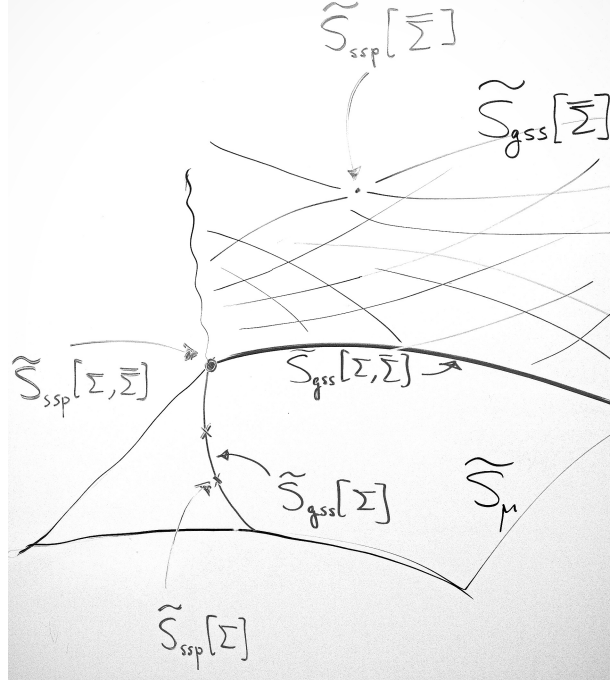 S̃_ssp[Σ̿]
S̃_gss[Σ̿]
S̃_ssp[Σ,Σ̿]
S̃_gss[Σ,Σ̿]
S̃_gss[Σ]
S̃_μ
S̃_ssp[Σ]